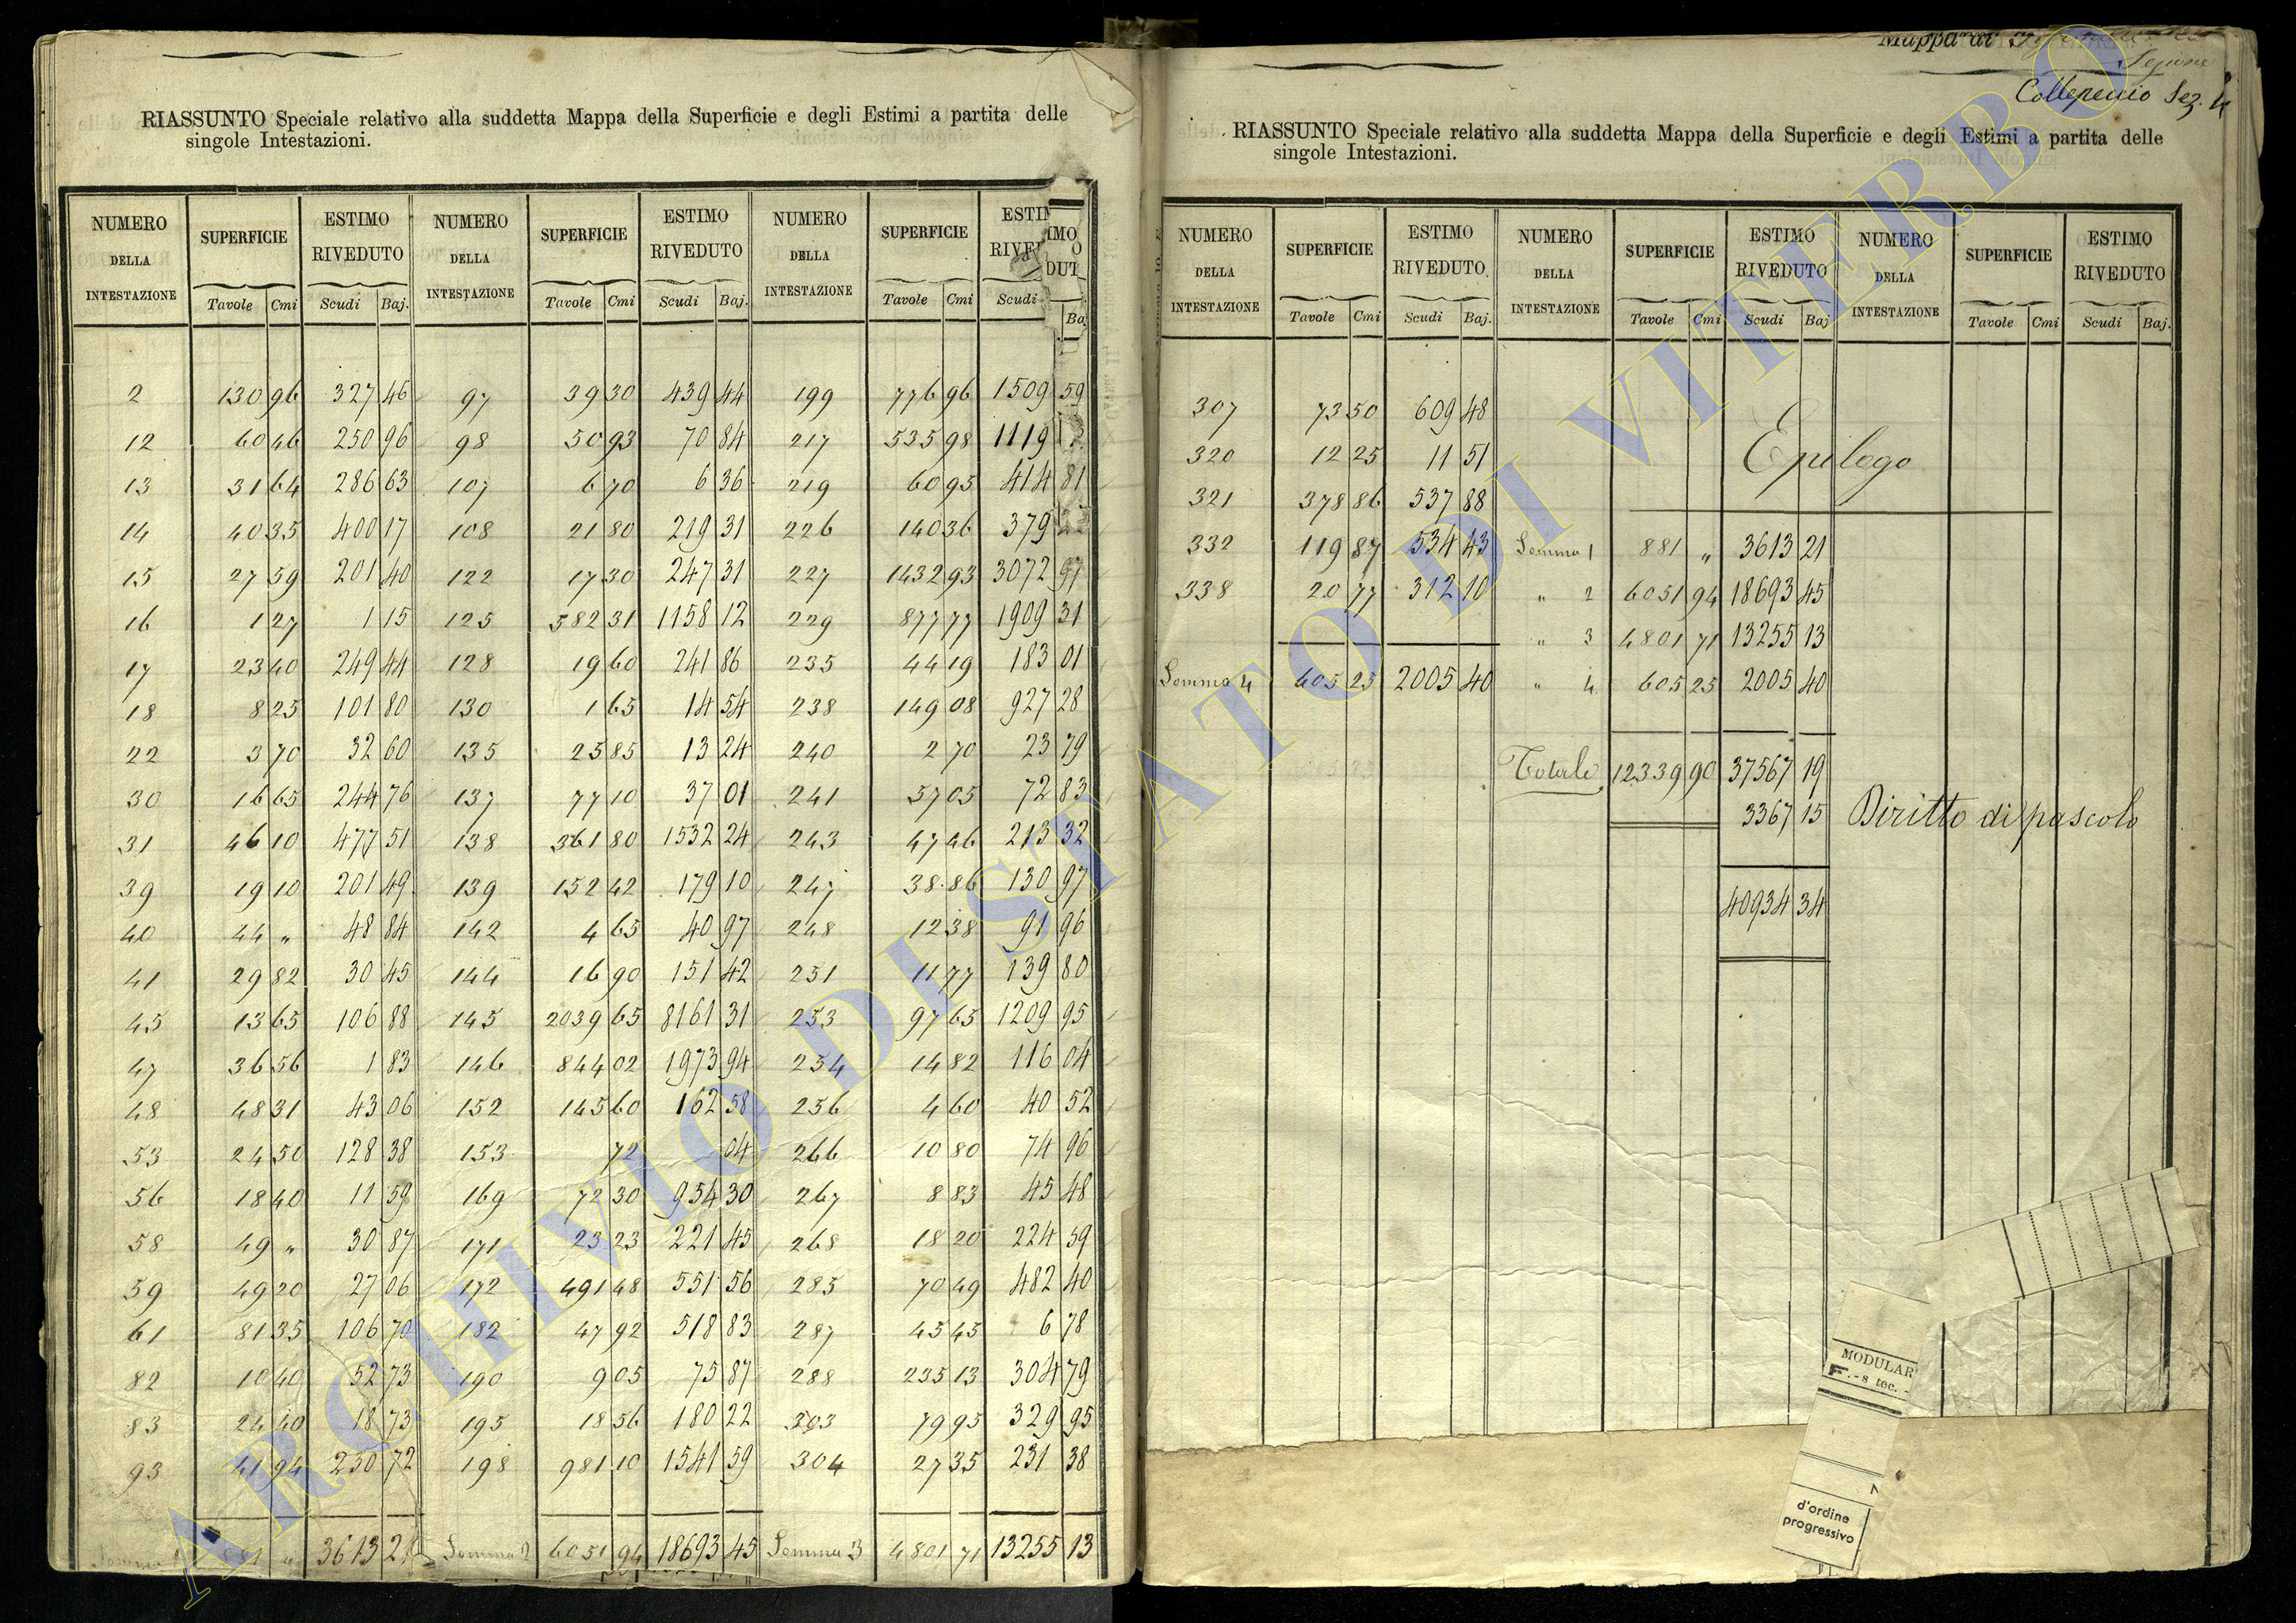 RIASSUNTO Speciale relativo alla suddetta Mappa della Superficie e degli Estimi a partita delle
singole Intestazioni.
NUMERO DELLA INTESTAZIONE SUPERFICIE Tavole Cmi ESTIMO RIVEDUTO Scudi Baj. NUMERO DELLA INTESTAZIONE SUPERFICIE Tavole Cmi ESTIMO RIVEDUTO Scudi Baj. NUMERO DELLA INTESTAZIONE SUPERFICIE Tavole Cmi Scudi
2 130 96 327 46 97 39 30 439 44 199 776 96 1509 59
12 60 46 250 96 98 50 93 70 84 217 535 98 1119
13 31 64 286 63 107 6 70 6 36 219 60 95 414 81
14 40 35 400 17 108 21 80 219 31 226 140 36 379
15 27 59 201 40 122 17 30 247 31 227 1432 93 3072 97
16 1 27 1 15 125 582 31 1158 12 229 877 77 1909 31
17 23 40 249 44 128 19 60 241 86 235 44 19 183 01
18 8 25 101 80 130 1 65 14 54 238 149 08 927 28
22 3 70 32 60 135 25 85 13 24 240 2 70 23 79
30 16 65 244 76 137 77 10 37 01 241 57 05 72 83
31 46 10 477 51 138 361 80 1532 24 243 47 46 213 32
39 19 10 201 49 139 152 42 179 10 247 38 86 130 97
40 44 „ 48 84 142 4 65 40 97 248 12 38 91 96
41 29 82 30 45 144 16 90 151 42 251 11 77 139 80
45 13 65 106 88 145 2039 65 8161 31 253 97 65 1209 95
47 36 56 1 83 146 844 02 1973 94 254 14 82 116 04
48 48 31 43 06 152 145 60 162 58 256 4 60 40 52
53 24 50 128 38 153 72 04 266 10 80 74 96
56 18 40 11 59 169 72 30 954 30 267 8 83 45 48
58 49 „ 30 87 171 23 23 221 45 268 18 20 224 59
59 49 20 27 06 172 491 48 551 56 285 70 49 482 40
61 81 35 106 70 182 47 92 518 83 287 45 45 6 78
82 10 40 52 73 190 9 05 75 87 288 235 13 304 79
83 24 40 18 73 195 18 56 180 22 303 79 95 329 95
93 41 94 250 72 198 981 10 1541 59 304 27 35 231 38
Somma 1 881 „ 3613 21 Somma 2 6051 94 18693 45 Somma 3 4801 71 13255 13
Mappa di
Sezione
Collepeccio Sez. 4
RIASSUNTO Speciale relativo alla suddetta Mappa della Superficie e degli Estimi a partita delle
singole Intestazioni.
NUMERO DELLA INTESTAZIONE SUPERFICIE Tavole Cmi ESTIMO RIVEDUTO Scudi Baj. NUMERO DELLA INTESTAZIONE SUPERFICIE Tavole Cmi ESTIMO RIVEDUTO Scudi Baj. NUMERO DELLA INTESTAZIONE SUPERFICIE Tavole Cmi ESTIMO RIVEDUTO Scudi Baj.
307 73 50 609 48
320 12 25 11 51
321 378 86 537 88
332 119 87 534 43
338 20 77 312 10
Somma 4 605 25 2005 40
Epilogo
Somma 1 881 „ 3613 21
„ 2 6051 94 18693 45
„ 3 4801 71 13255 13
„ 4 605 25 2005 40
Totale 12339 90 37567 19
3367 15 Diritto di pascolo
40934 34
MODULAR
F.-8 tec.-
d'ordine
progressivo
ARCHIVIO DI STATO DI VITERBO